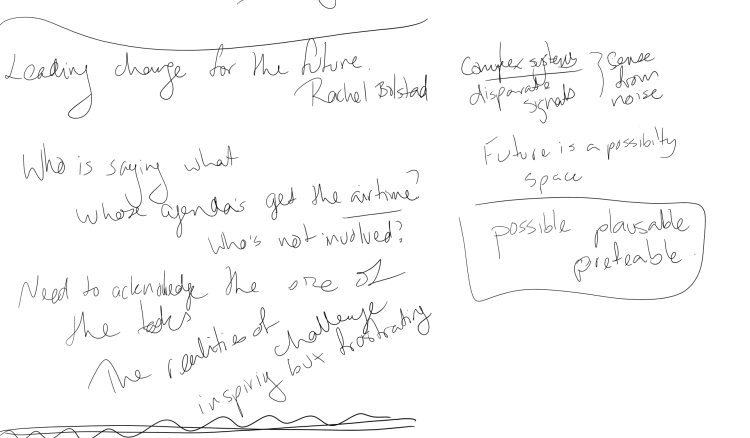 Leading change for the future.
Rachel Bolstad
Who is saying what
whose agenda's get the airtime?
who's not involved?
Need to acknowledge the size of
the tasks
The realities of challenge
inspiring but frustrating
Complex systems
disparate
signals
Sense
from
noise
Future is a possibilty
space
possible plausable
preteable